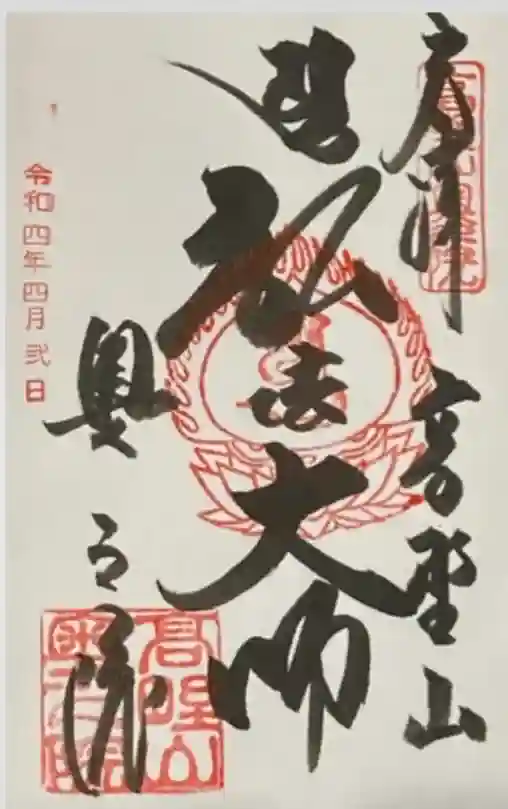 奉拝
高野山
弘法大師
奥之院
令和四年四月弐日
高野山
奥之院